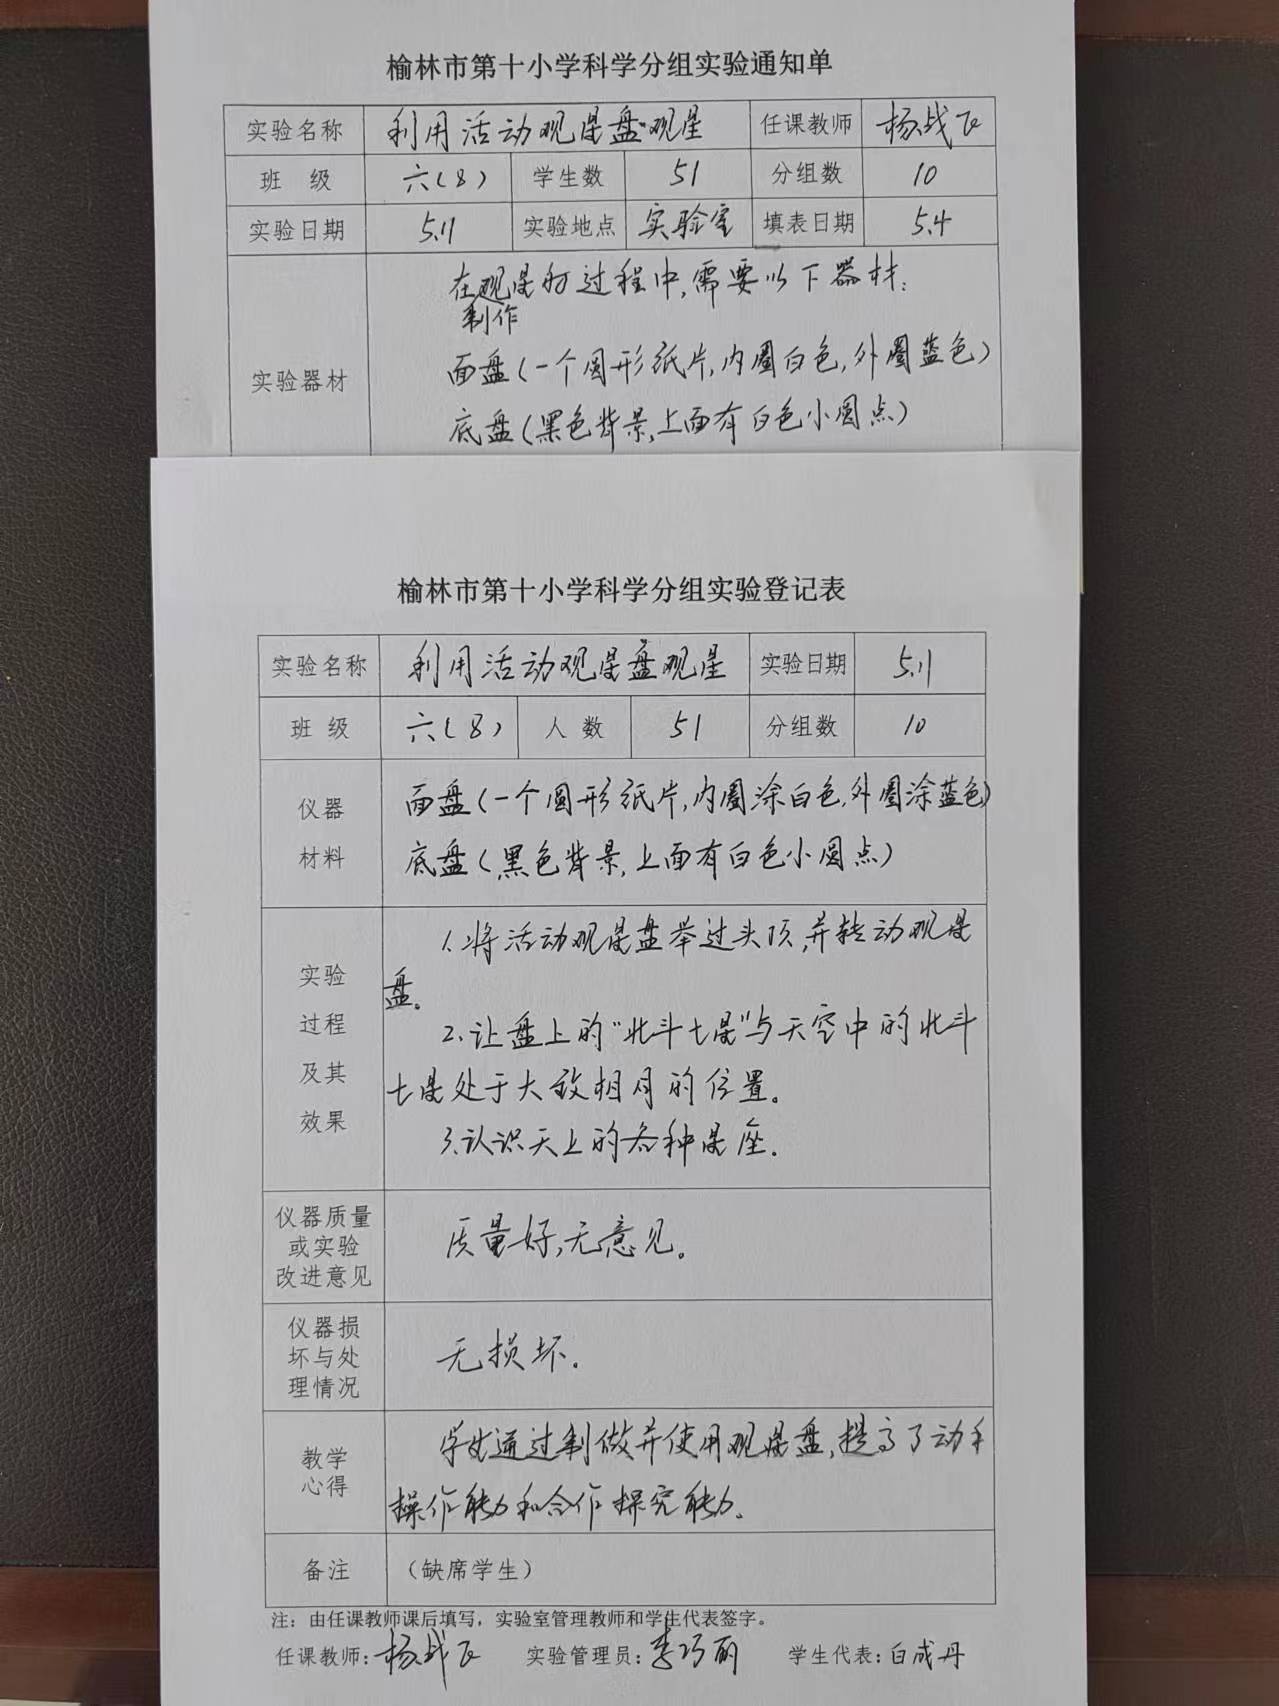 榆林市第十小学科学分组实验通知单
实验名称 利用活动观星盘观星 任课教师 杨战飞
班 级 六(8) 学生数 51 分组数 10
实验日期 5.11 实验地点 实验室 填表日期 5.4
在观星的过程中,需要以下器材:
制作
实验器材 面盘(一个圆形纸片,内圈白色,外圈蓝色)
底盘(黑色背景,上面有白色小圆点)
榆林市第十小学科学分组实验登记表
实验名称 利用活动观星盘观星 实验日期 5.11
班 级 六(8) 人 数 51 分组数 10
仪器 面盘(一个圆形纸片,内圈涂白色,外圈涂蓝色)
材料 底盘(黑色背景,上面有白色小圆点)
实验
过程
及其
效果
1.将活动观星盘举过头顶,并转动观星
盘。
2.让盘上的“北斗七星”与天空中的北斗
七星处于大致相同的位置。
3.认识天上的各种星座。
仪器质量
或实验
改进意见
质量好,无意见。
仪器损
坏与处
理情况
无损坏.
教学
心得
学生通过制做并使用观星盘,提高了动手
操作能力和合作探究能力。
备注 (缺席学生)
注：由任课教师课后填写，实验室管理教师和学生代表签字。
任课教师：杨战飞 实验管理员：李巧丽 学生代表：白成丹